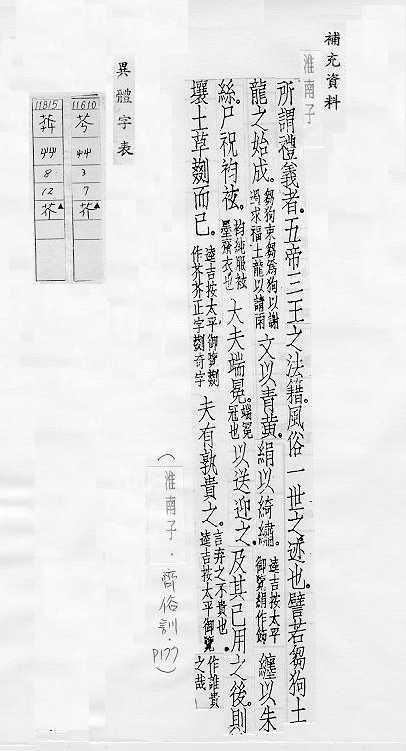 補充資料
淮南子
所謂禮義者。五帝三王之法籍。風俗一世之迹也。譬若芻狗土
龍之始成。芻狗束芻爲狗以謝過求福土龍以請雨 文以青黃。絹以綺繡。逵吉按太平御覽絹作 纏以朱
絲。尸祝袀袨。袀純服袨墨齋衣也 大夫端冕。端冕冠也 以送迎之。及其已用之後。則
壤土草劉而已。逵吉按太平御覽劉作芥芥正字劉奇字 夫有孰貴之。言弃之不貴也。逵吉按太平御覽作誰貴之哉
(淮南子·齊俗訓·P177)
異體字表
11610
芥
艸
3
7
芥▲
11815
艸
8
12
芥▲